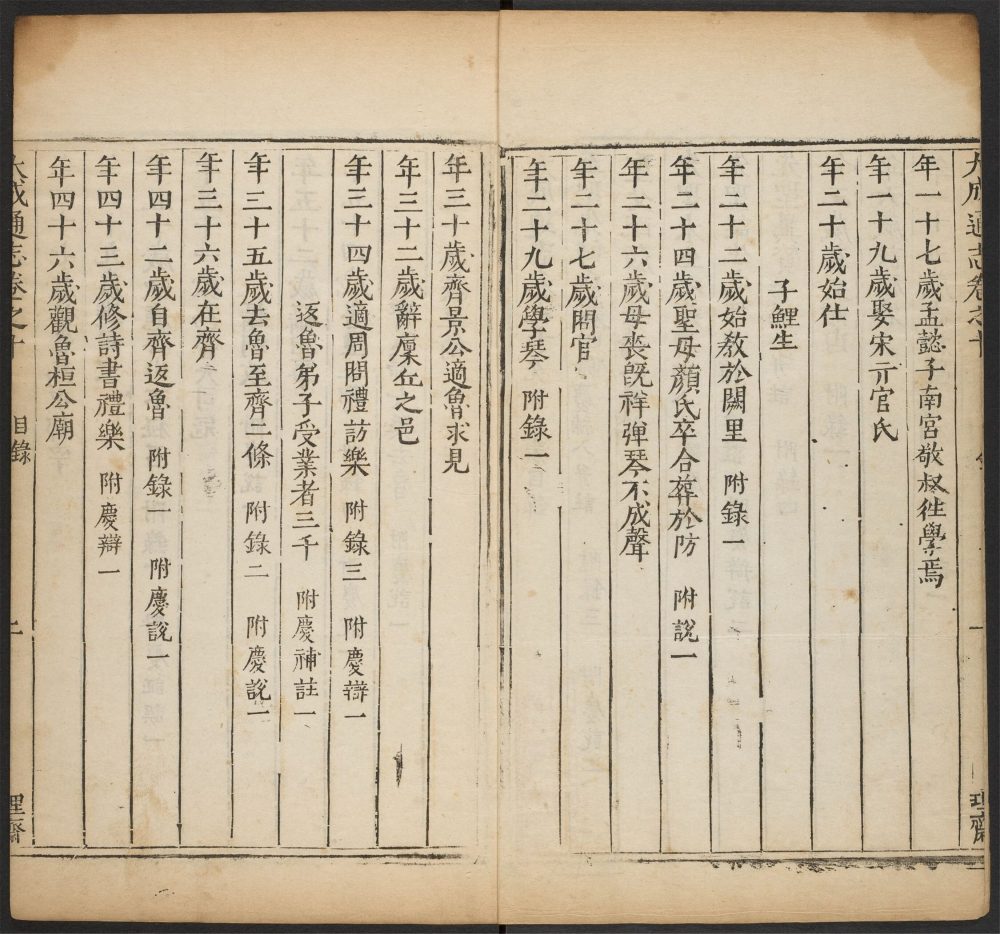 大成通志卷之十
一
理齋
年一十七歲孟懿子南宮敬叔徃學焉
年一十九歲娶宋亓官氏
年二十歲始仕
子鯉生
年二十二歲始教於闕里 附錄一
年二十四歲聖母顏氏卒合葬於防 附說一
年二十六歲母喪旣祥彈琴不成聲
年二十七歲問官
年二十九歲學琴 附錄一
年三十歲齊景公適魯求見
年三十二歲辭廩丘之邑
年三十四歲適周問禮訪樂 附錄三 附慶辯一
返魯弟子受業者三千 附慶補註一
年三十五歲去魯至齊二條 附錄二 附慶說一
年三十六歲在齊
年四十二歲自齊返魯 附錄一 附慶說一
年四十三歲修詩書禮樂 附慶辯一
年四十六歲觀魯桓公廟
大成通志卷之十 目錄
理齋